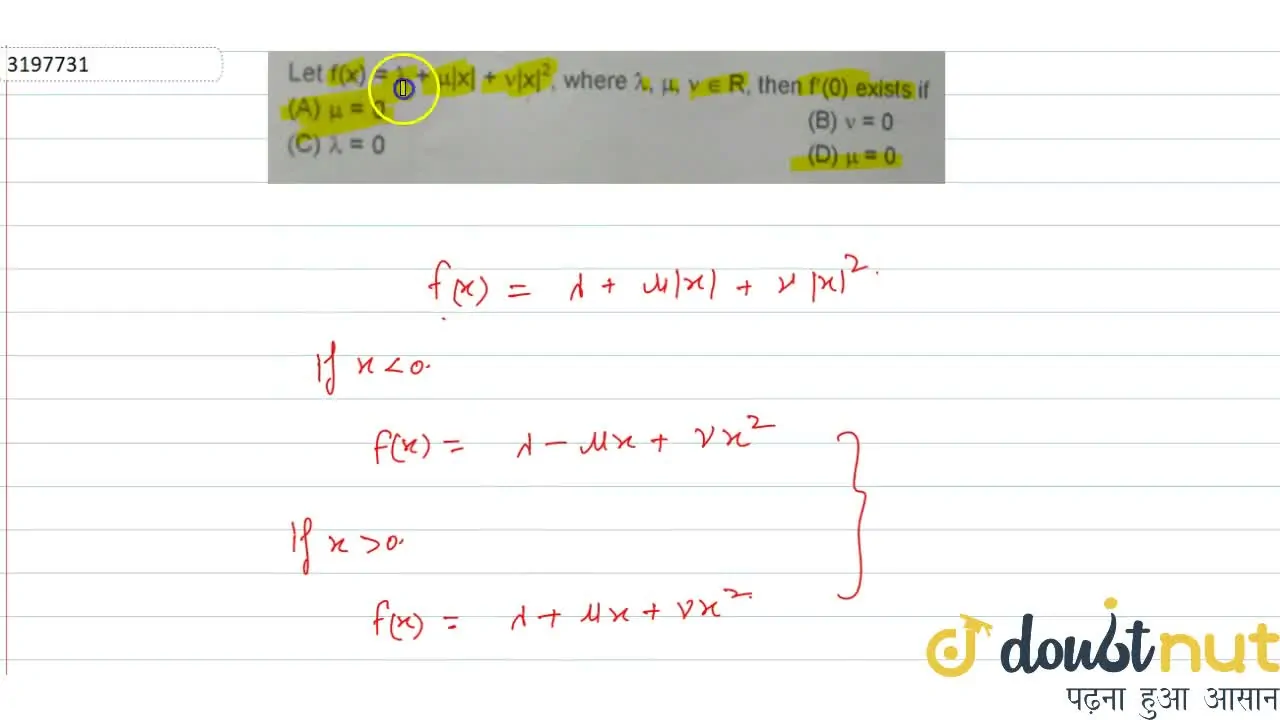 3197731
Let f(x) = λ + μ|x| + ν|x|², where λ, μ, ν ∈ R, then f'(0) exists if
(A) μ = 0
(B) ν = 0
(C) λ = 0
(D) μ = 0
f(x) = λ + μ|x| + ν|x|².
If x < 0.
f(x) = λ - μx + νx²
If x > 0.
f(x) = λ + μx + νx².
doubtnut
पढ़ना हुआ आसान